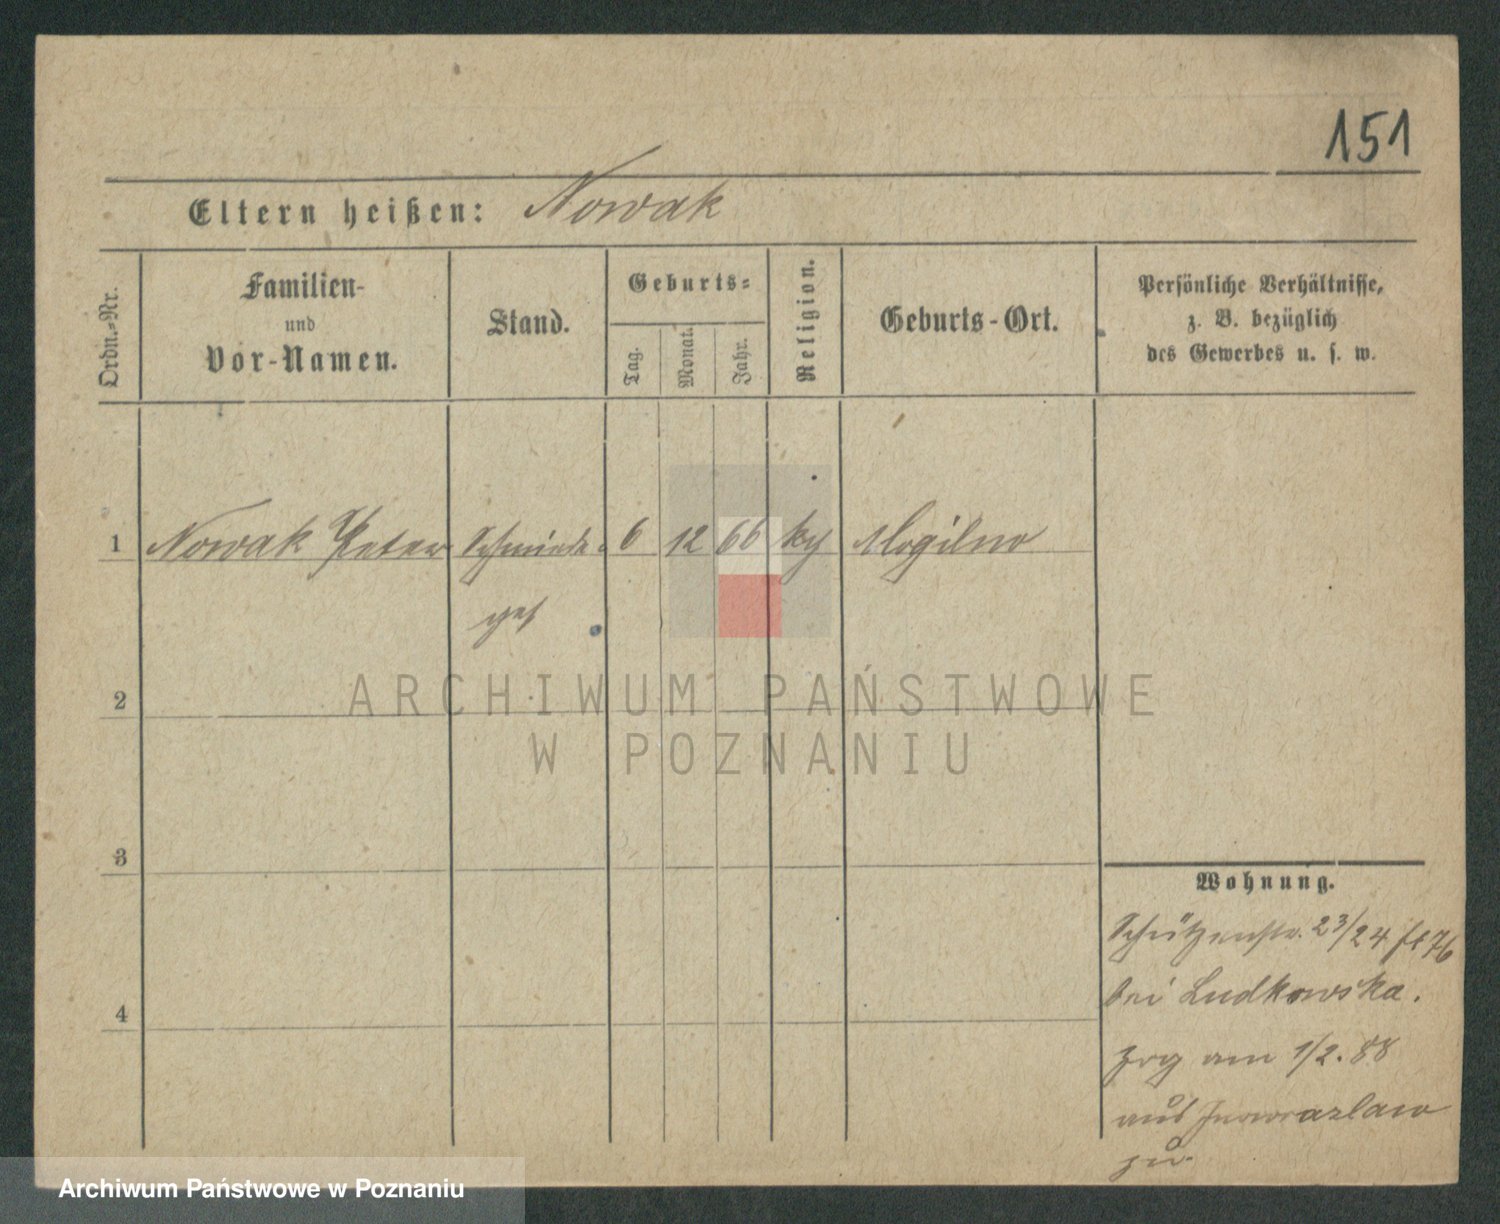 151
Eltern heißen: Nowak
Ordn.-Nr.
Familien-
und
Vor-Namen.
Stand.
Geburts-
Tag.
Monat.
Jahr.
Religion.
Geburts-Ort.
Persönliche Verhältnisse,
z. B. bezüglich
des Gewerbes u. s. w.
1 Nowak Peter Schmiede- 6 12 66 Mogilno
ges
2
ARCHIWUM PAŃSTWOWE
W POZNANIU
3
4
Wohnung.
Schützenstr. 23/24
bei Ludkowska.
zog am 1/2. 88
aus Inowrazlaw
zu.
Archiwum Państwowe w Poznaniu